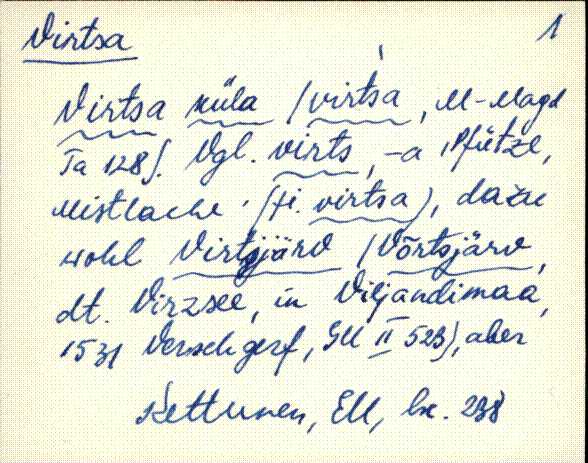 Virtsa 1
Virtsa küla /virtsa, M-Magd
Ta 128/. Vgl. virts, -a 'Pfütze,
Mistlache' (fi. virtsa), dazu
wohl Virtsjärv /Võrtsjärv,
dt. Virzsee, in Viljandimaa,
1531 GU II 523/, aber
Kettunen, EM, lk. 238